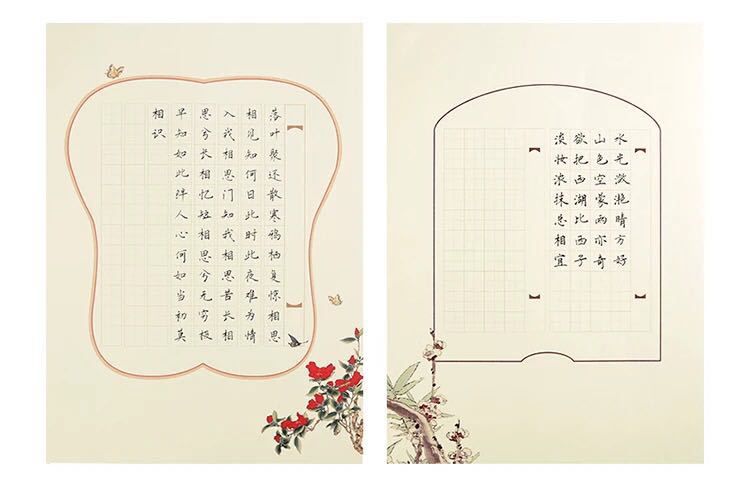 落叶聚还散寒鸦栖复惊相思
相见知何日此时此夜难为情
入我相思门知我相思苦长相
思兮长相忆短相思兮无穷极
早知如此绊人心何如当初莫
相识
水光潋滟晴方好
山色空蒙雨亦奇
欲把西湖比西子
淡妆浓抹总相宜